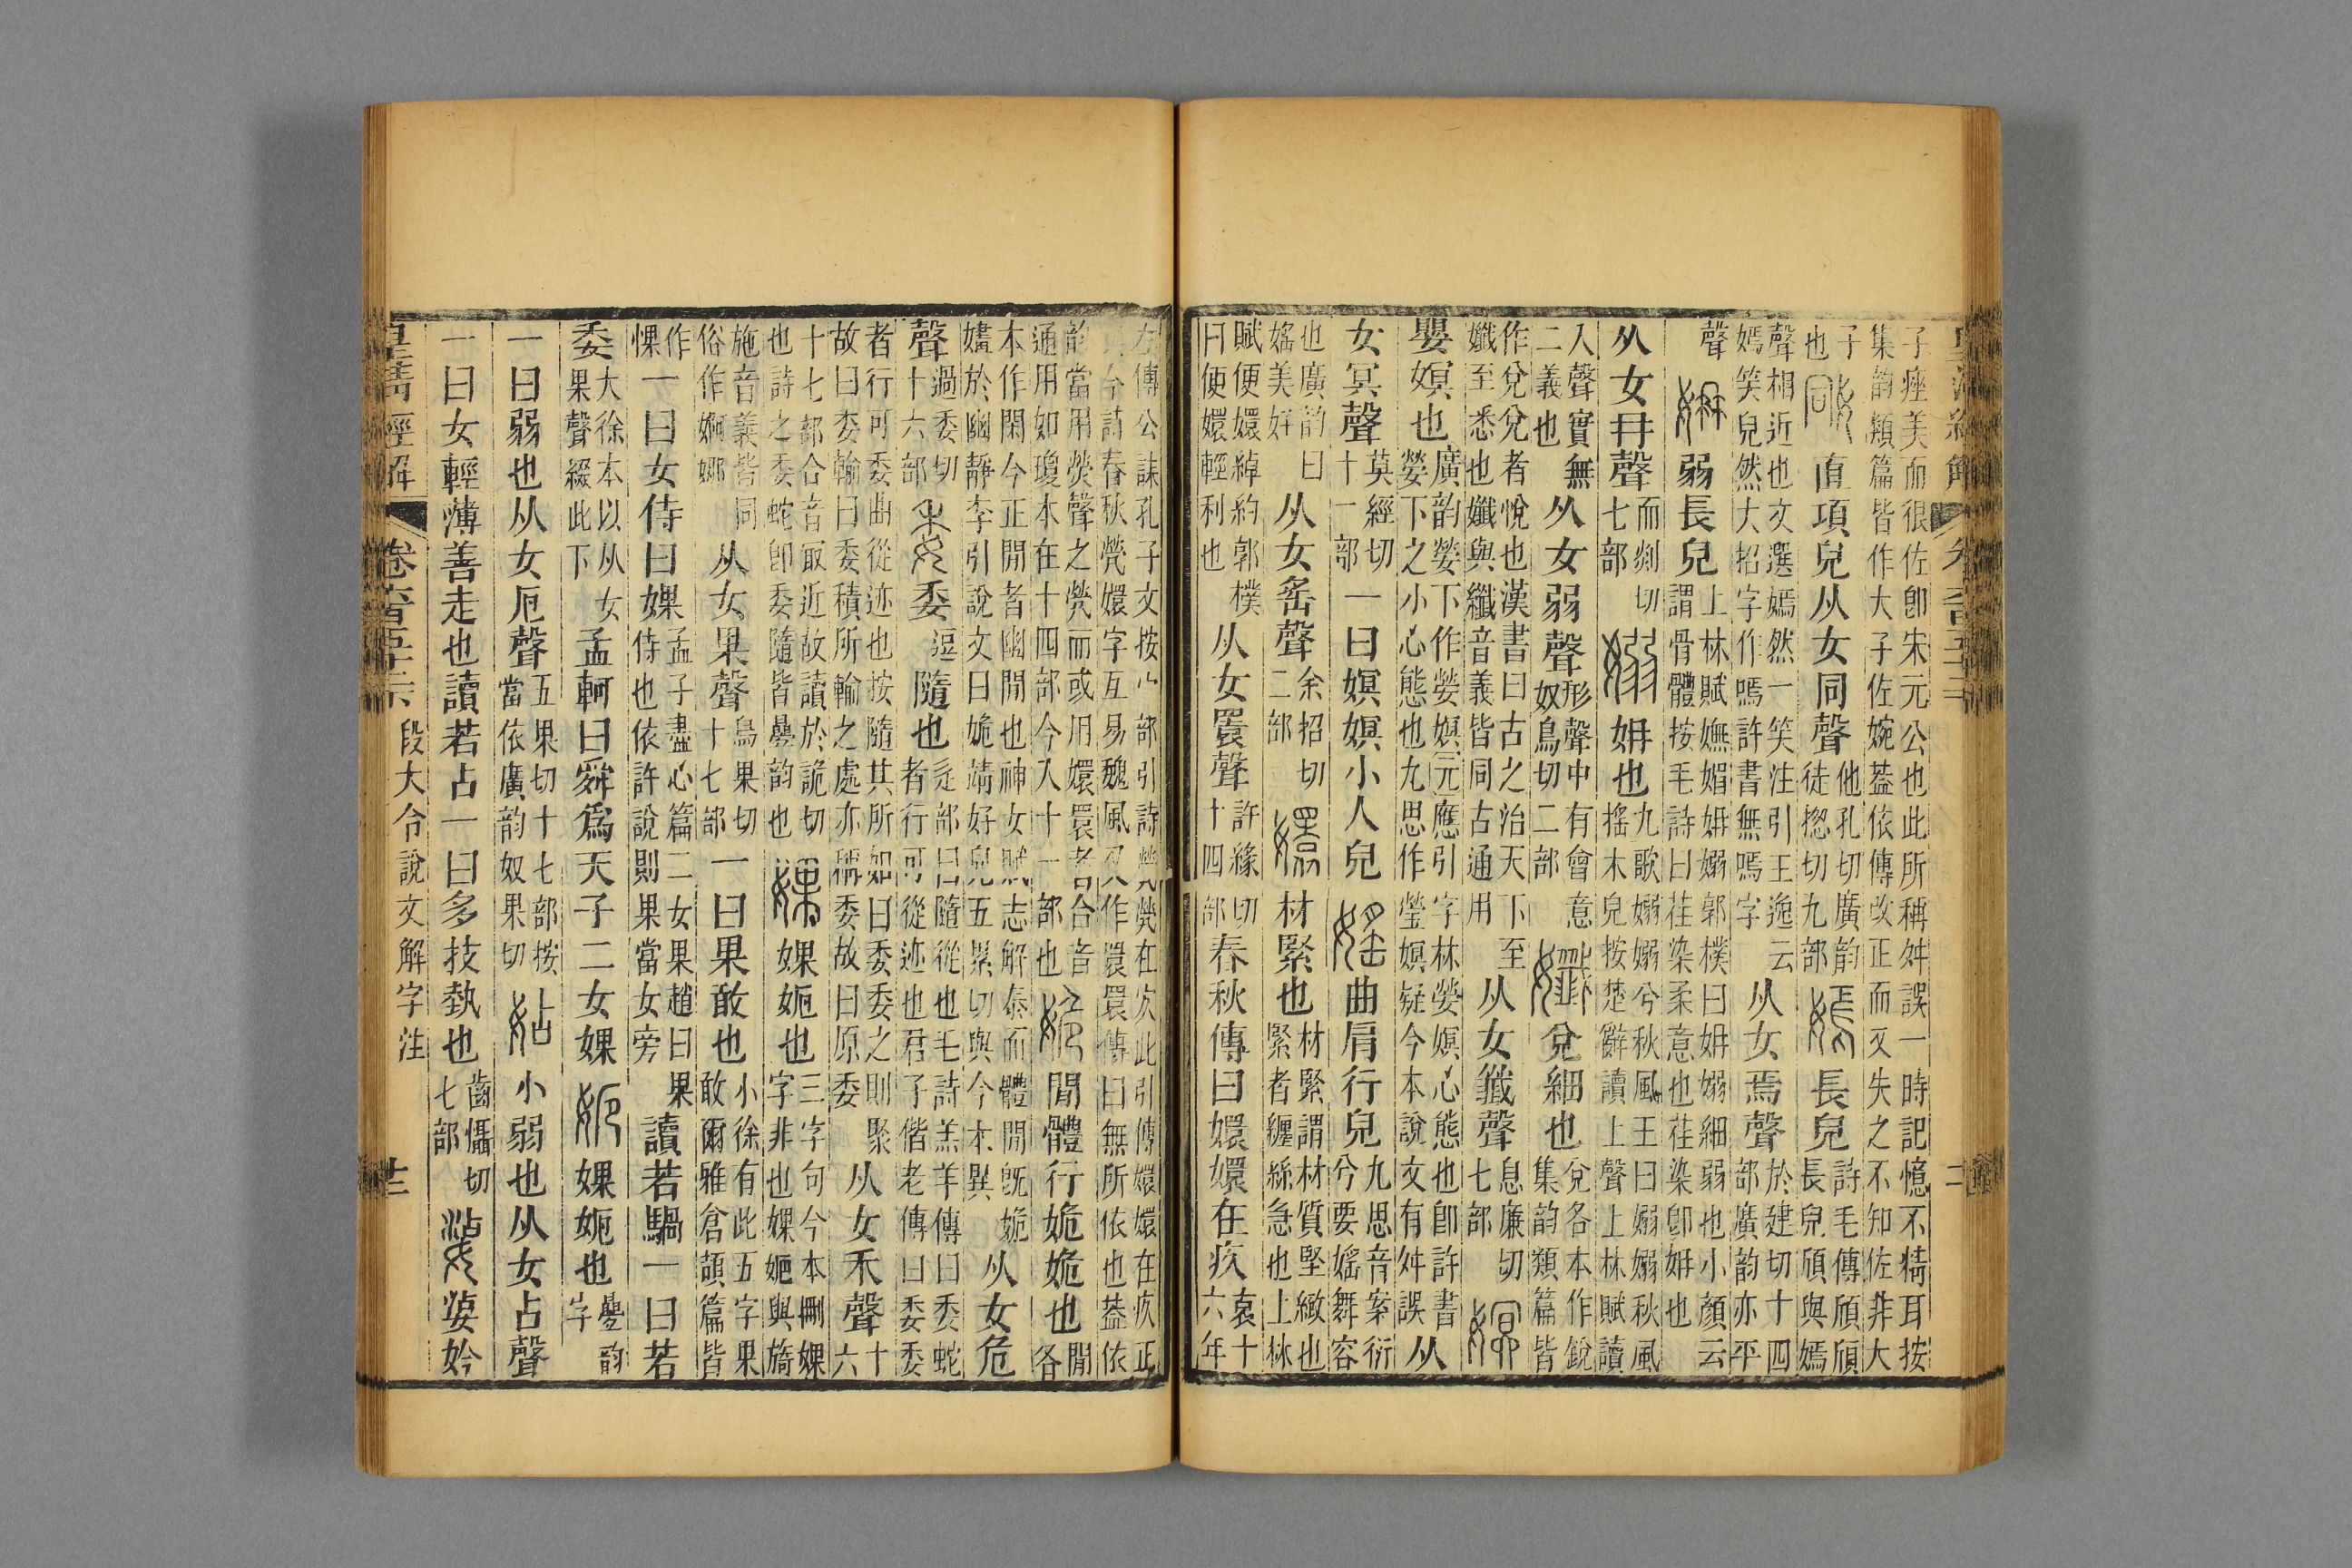 子痤美而很佐卽朱元公也此所稱舛誤一時記憶不精耳按
集韵類篇皆作大子佐婉葢依傳改正而又失之不知佐非大
子也 直項皃从女同聲他孔切廣韵徒摠切九部 長皃詩毛傳頎頎長皃頎與嫣
聲相近也文選嫣然一笑注引王逸云嫣笑皃然大招字作嘕許書無嘕字从女焉聲於建切十四部廣韵亦平
聲 弱長皃上林賦嫵媚姌嫋郭樸曰姌嫋細弱也小顏云謂骨體按毛詩曰荏染柔意也荏染卽姌也
从女冄聲而剡切七部嫋姌也九歌嫋嫋兮秋風王曰嫋嫋秋風搖木皃按楚辭讀上聲上林賦讀
入聲實無二義也从女弱聲形聲中有會意奴鳥切二部孅兌細也兌各本作銳集韵類篇皆
作兌兌者悅也漢書曰古之治天下至孅至悉也孅與纖音義皆同古通用从女韱聲息廉切七部嫇
嬰嫇也廣韵嫈下作嫈嫇元應引字林嫈嫇心態也卽許書嫈下之小心態也九思作瑩嫇疑今本說文有舛誤从
女冥聲莫經切十一部一曰嫇嫇小人皃媱曲肩行皃九思音案衍兮要媱舞容
也廣韵曰媱美好从女䍃聲余招切二部嬛材緊也材緊謂材質堅緻也緊者纏絲急也上林
賦便嬛綽約郭樸曰便嬛輕利也从女瞏聲許緣切十四部春秋傳曰嬛嬛在疚哀十六年
左傳公誄孔子文按宀部引詩煢煢在疚此引傳嬛嬛在疚正
與今詩春秋煢嬛字互易魏風又作睘睘傳曰無所依也葢依
韵當用煢聲之煢而或用嬛睘者合音通用如瓊本在十四部今入十一部也姽閒體行姽姽也閒各
本作閑今正閒者幽閒也神女賦志解泰而體閒旣姽嫿於幽靜李引說文曰姽靖好皃五累切與今本異从女危
聲過委切十六部委委逗隨也辵部曰隨從也毛詩羔羊傳曰委蛇者行可從迹也君子偕老傳曰委委
者行可委曲從迹也按隨其所如曰委委之則聚故曰委輸曰委積所輸之處亦稱委故曰原委从女禾聲十六
十七部合音冣近故讀於詭切也詩之委蛇卽委隨皆疊韵也婐婐㛂也三字句今本刪婐字非也婐㛂與旖
施音義皆同俗作婀娜从女果聲烏果切十七部一曰果敢也小徐有此五字果敢爾雅倉頡篇皆
作惈一曰女侍曰婐孟子盡心篇二女果趙曰果侍也依許說則果當女旁讀若騧一曰若
委大徐本以从女果聲綴此下孟軻曰舜爲天子二女婐㛂婐㛂也疊韵字
一曰弱也从女厄聲五果切十七部按當依廣韵奴果切㚲小弱也从女占聲
一曰女輕薄善走也讀若占一曰多技埶也齒懾切七部 妗
皇淸經解 卷六百五十二 段大令說文解字注 十二